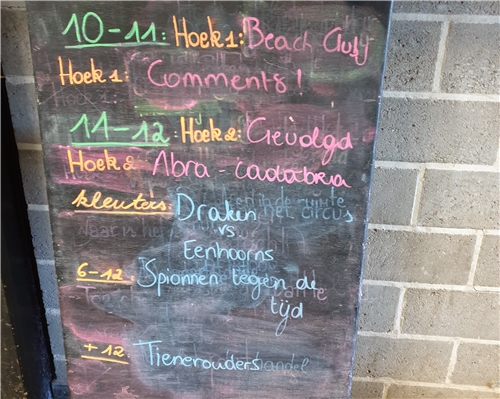 10-11: Hoek 1: Beach Golf
Hoek 1: Comments!
11-12: Hoek 2: Gevolgd
Hoek 2 Abra-cadabra
kleuters: Draken
vs
Eenhoorns
6-12: Spionnen tegen de
tijd
+12 Tienerouders